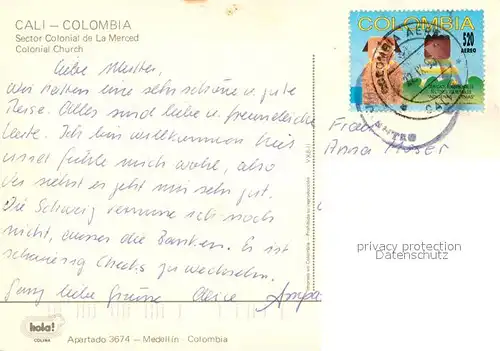 CALI – COLOMBIA
Sector Colonial de La Merced
Colonial Church
COLOMBIA
520
AEREO
liebe Mutter,
Wir hatten eine sehr schöne u. gute
Reise. Alles sind liebe u. freundliche
Leute. Ich bin willkommen hier
und fühle mich wohl, also
Du siehst es geht mir sehr gut.
Die Schweiz vermisse ich noch
nicht, ausser die Banken. Es ist
schwierig Checks zu wechseln.
Ganz liebe Grüsse Deine
Frau
Anna Moser
privacy protection
Datenschutz
hola!
COLINA
Apartado 3674 – Medellín – Colombia